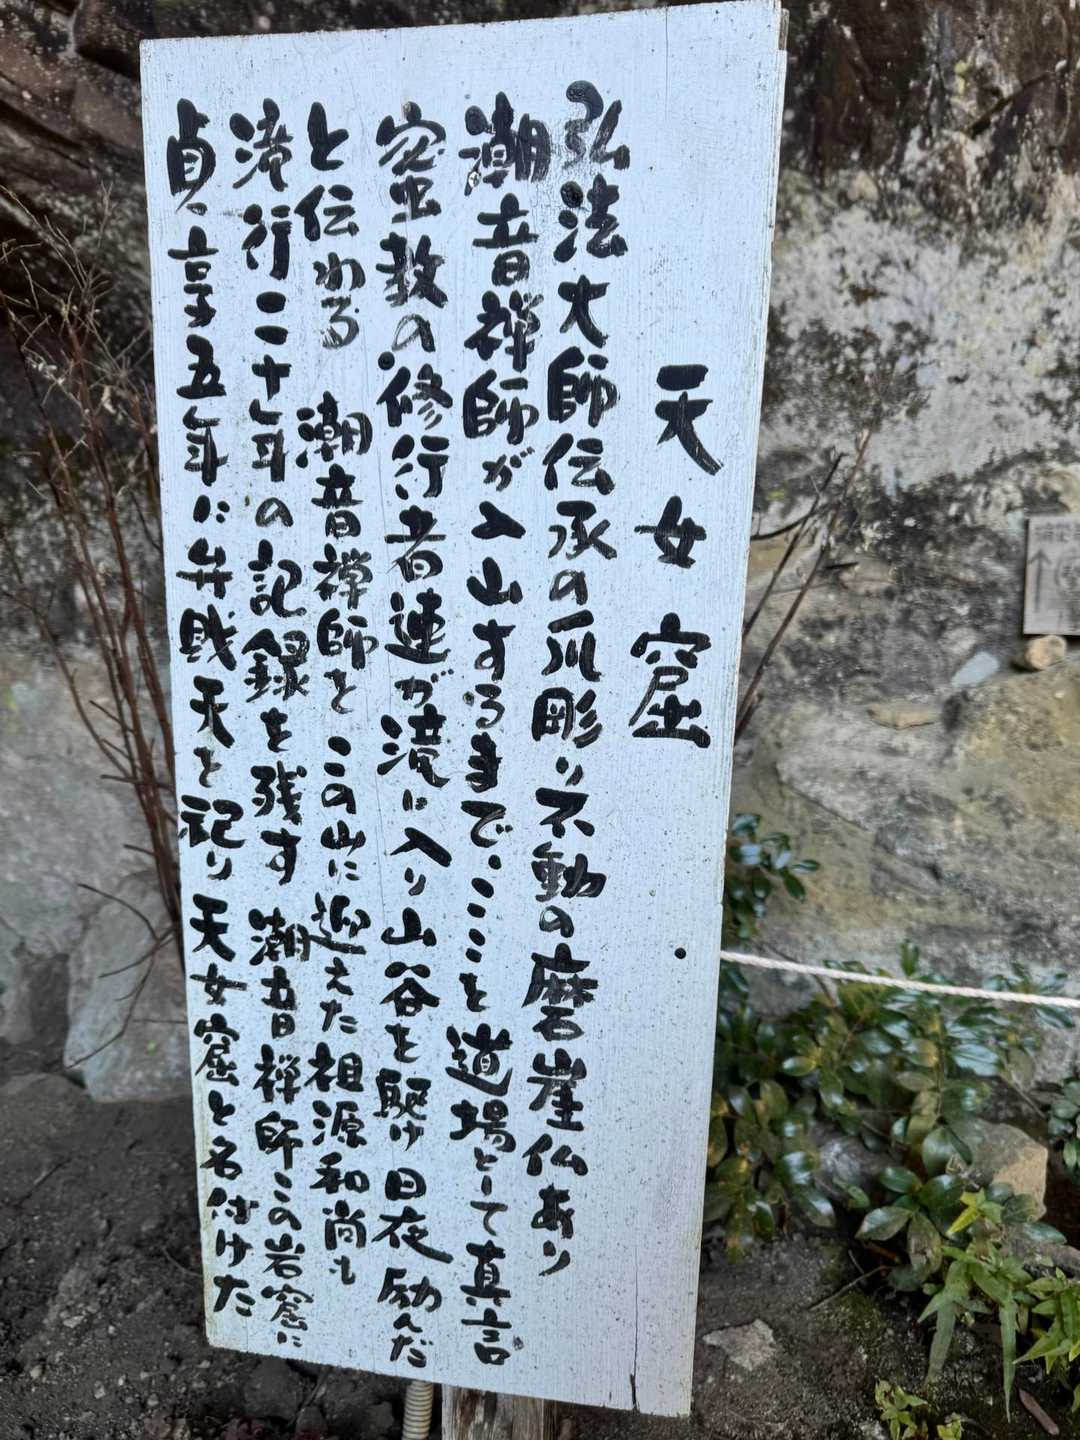 天女窟
弘法大師伝承の爪彫り不動の磨崖仏あり
潮音禅師が入山するまで、ここを道場として真言
密教の修行者達が滝に入り山谷を駆け日夜励んだ
と伝わる 潮音禅師をこの山に迎えた祖源和尚も
滝行二十年の記録を残す 潮音禅師この岩窟に
貞享五年に弁財天を祀り天女窟と名付けた